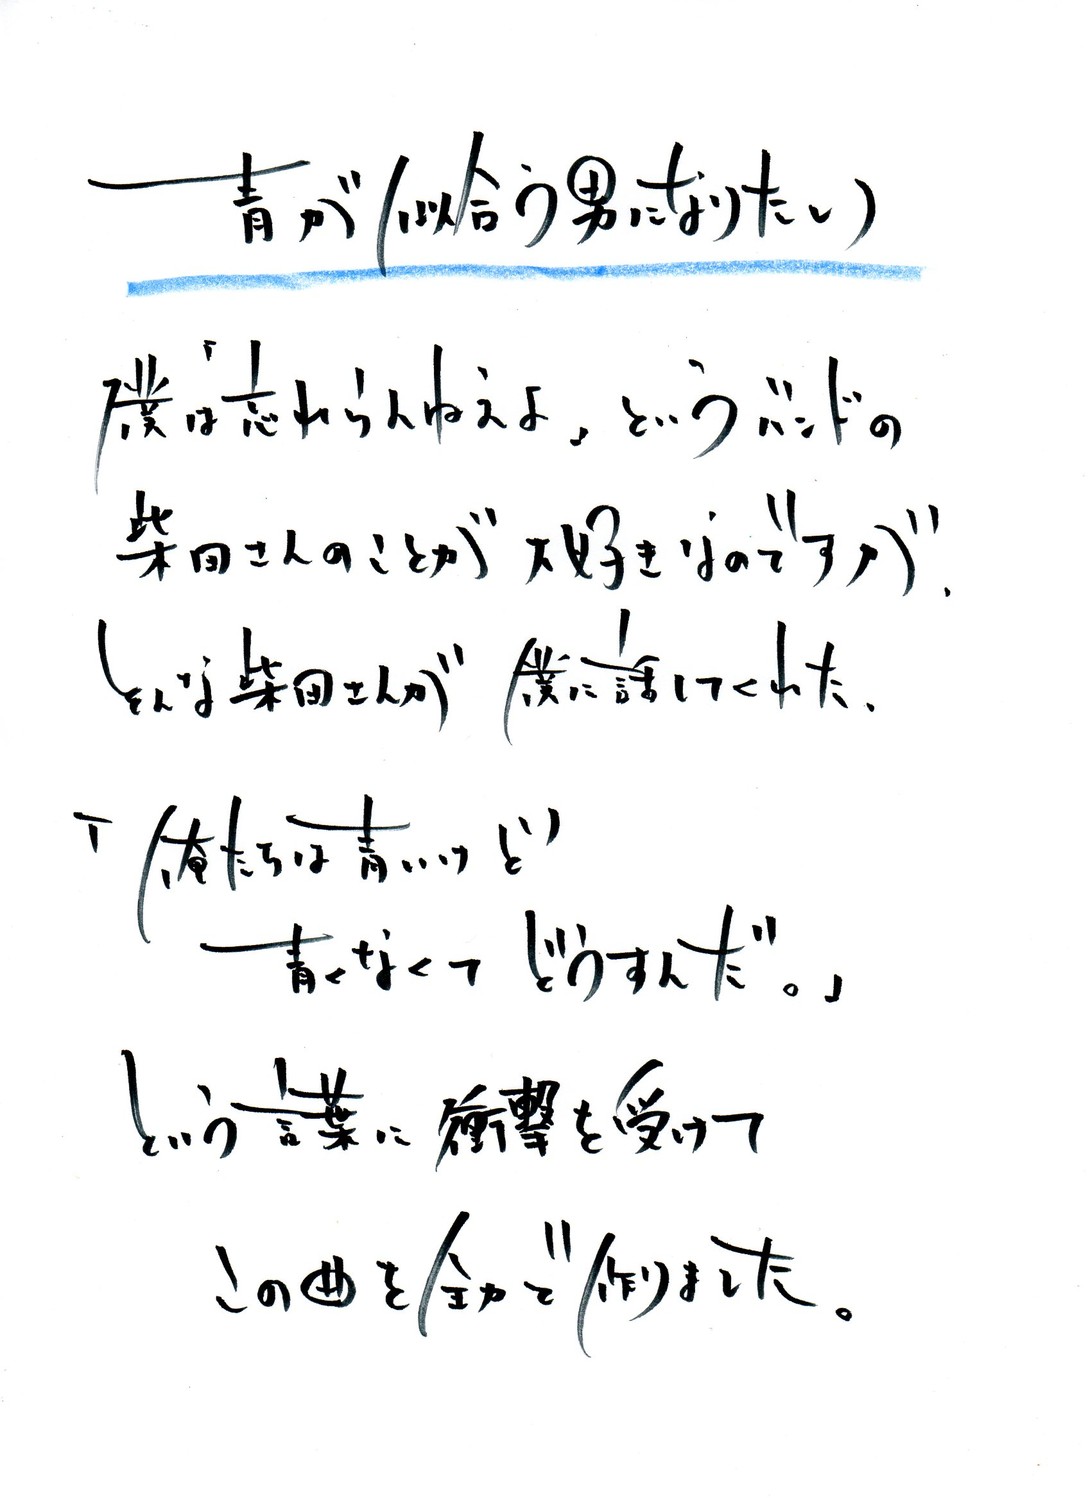 青が似合う男になりたい
僕は「忘れらんねえよ」というバンドの
柴田さんのことが大好きなのですが、
そんな柴田さんが僕に話してくれた、
「俺たちは青いけど
青くなくてどうすんだ。」
という言葉に衝撃を受けて
この曲を全力で作りました。